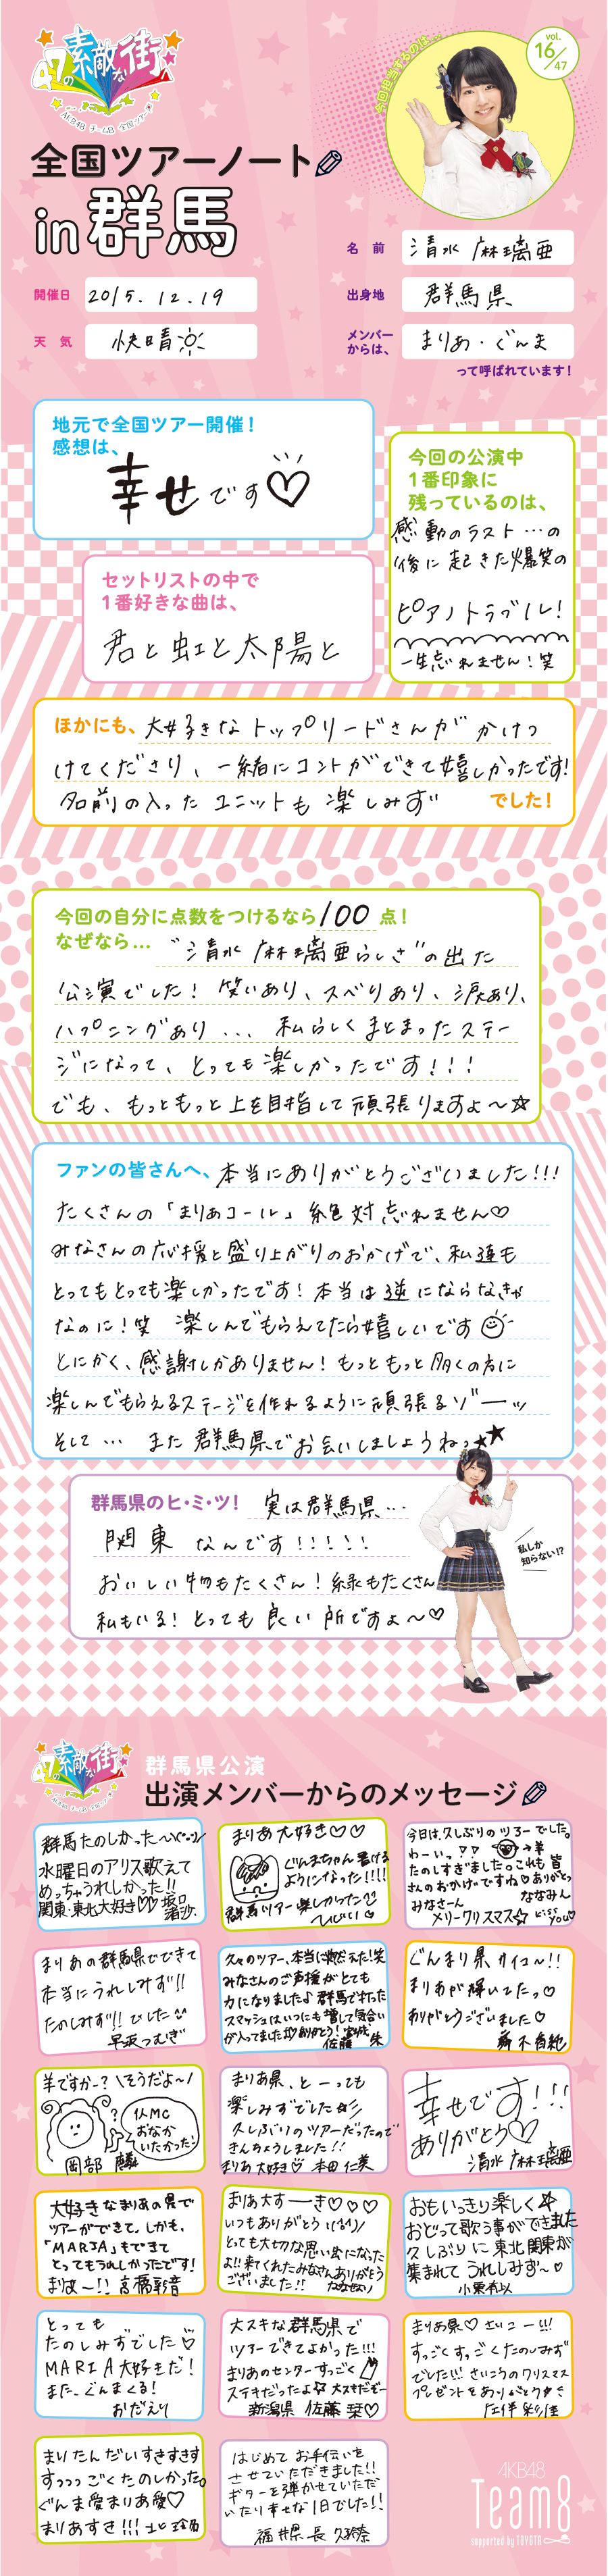 47の素敵な街へ
AKB48 チーム8 全国ツアー
今回担当するのは…
vol.
16/47
全国ツアーノート
in 群馬
名 前 清水 麻璃亜
開催日 2015.12.19
出身地 群馬県
天 気 快晴
メンバー
からは、 まりあ・ぐんま
って呼ばれています!
地元で全国ツアー開催!
感想は、
幸せです♡
今回の公演中
1番印象に
残っているのは、
感動のラスト…の
後に起きた爆笑の
ピアノトラブル!
一生忘れません!笑
セットリストの中で
1番好きな曲は、
君と虹と太陽と
ほかにも、大好きなトップリードさんがかけつ
けてくださり、一緒にコントができて嬉しかったです!
名前の入ったユニットも楽しみず でした!
今回の自分に点数をつけるなら 100 点!
なぜなら… "清水麻璃亜らしさ"の出た
公演でした! 笑いあり、スベりあり、涙あり、
ハプニングあり... 私らしくまとまったステー
ジになって、とっても楽しかったです!!!
でも、もっともっと上を目指して頑張りますよ〜☆
ファンの皆さんへ、本当にありがとうございました!!!
たくさんの「まりあコール」絶対忘れません♡
みなさんの応援と盛り上がりのおかげで、私達も
とってもとっても楽しかったです! 本当は逆にならなきゃ
なのに!笑 楽しんでもらえてたら嬉しいです
とにかく、感謝しかありません! もっともっと多くの方に
楽しんでもらえるステージを作れるように頑張るゾーッ
そして… また群馬県でお会いしましょうねっ★★
群馬県のヒ・ミ・ツ! 実は群馬県…
関東なんです!!!!!
おいしい物もたくさん! 緑もたくさん
私もいる! とっても良い所ですよ〜♡
私しか
知らない!?
47の素敵な街へ
群馬県公演
出演メンバーからのメッセージ
群馬たのしかった〜
水曜日のアリス歌えて
めっちゃうれしかった!!
関東・東北大好き♡♡ 坂口渚沙.
まりあ大好き♡♡
ぐんまちゃん書ける
ようになった!!!!
群馬ツアー楽しかった
今日は、久しぶりのツアーでした。
わーいっ
たのしすぎました。これも皆
さんのおかげですね♡ありがとっ
みなさーん ななみん
メリークリスマス☆
まりあの群馬県でできて
本当にうれしみず!!
たのしみず!! でした
早坂つむぎ
久々のツアー、本当に燃えた!笑
みなさんのご声援がとても
力になりました♪ 群馬で打った
スマッシュはいつにも増して気合い
が入ってました ありがとう! 宮城 佐藤朱
ぐんまり県 サイコー!!
まりあが輝いてたっ♡
ありがとうございました♡
舞木香純
羊ですかー? そうだよ〜
仏MC
おなか
いたかった
岡部 麟
まりあ県、とーっても
楽しみずでした☆
久しぶりのツアーだったので
きんちょうしました!!
まりあ大好き♡ 本田 仁美
幸せです!!!
ありがとう♡
清水 麻璃亜
大好きなまりあの県で
ツアーができて、しかも、
「MARIA」もできて
とってもうれしかったです!
まりあ〜!! 高橋彩音
まりあ大すーき♡♡♡
いつもありがとう
とっても大切な思い出になった
よ!! 来てくれたみなさんありがとう
ございました!!
おもいっきり楽しく
おどって歌う事ができました
久しぶりに東北関東が
集まれてうれしみず〜♡
小栗有以
とっても
たのしみずでした♡
MARIA大好きだ!
また、ぐんまくる!
おだえり
大スキな群馬県で
ツアーできてよかった!!!
まりあのセンターすっごく
ステキだったよ 大スキだぞー
新潟県 佐藤 栞♡
まりあ県♡ さいこー!!!
すっごくすっごくたのしみず
でした!!! さいこうのクリスマス
プレゼントをありがとう
左伴 彩佳
まりたんだいすきすきす
すっっっごくたのしかった。
ぐんま愛まりあ愛♡
まりあすき!!! 北 玲名
はじめてお手伝いを
させていただきました!!
ギターを弾かせていただ
いたり幸せな1日でした!!
福井県 長 久玲奈
AKB48
Team8
supported by TOYOTA